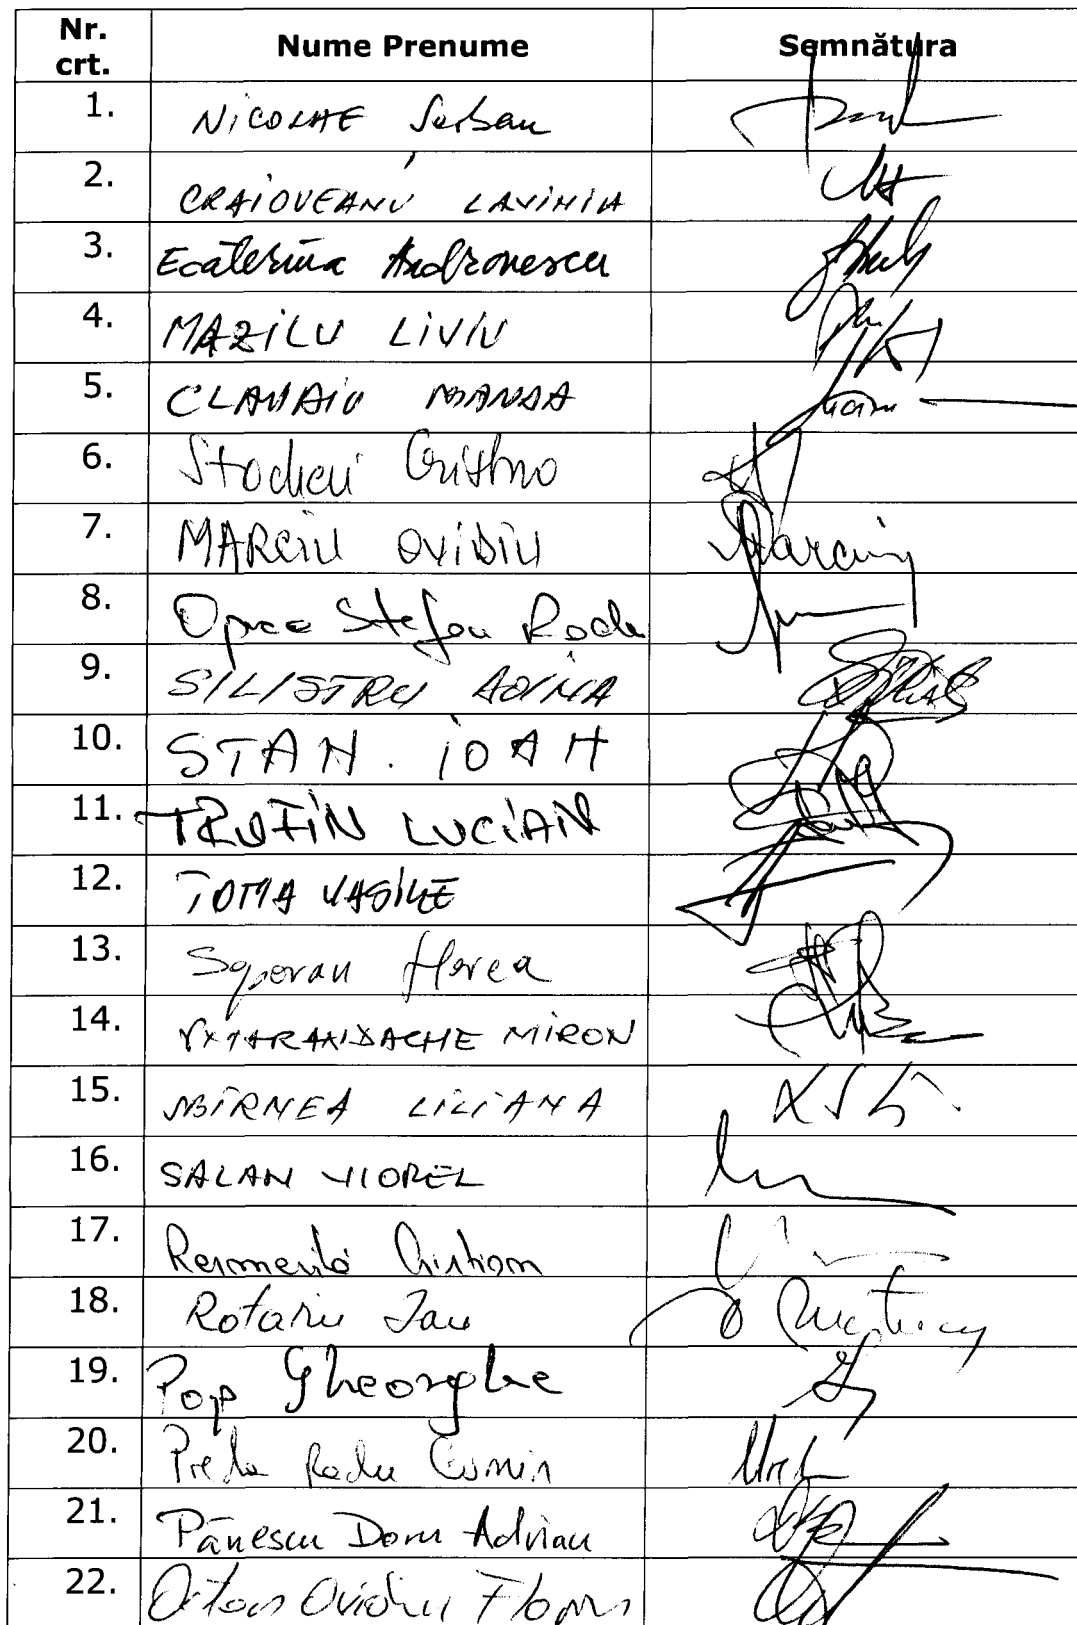 Nr. crt. Nume Prenume Semnătura
1. NICOLAE Serban
2. CRAIOVEANU LAVINIA
3. Ecaterina Andronescu
4. MAZILU LIVIU
5. CLAUDIU MANDA
6. Cristina
7. MARCIU OVIDIU Marciu
8. Oprea Stefan Radu
9. SILISTRU DOINA
10. STAN IOAN
11. TRUFIN LUCIAN
12. TOMA VASILE
13. Horea
14. MIRON
15. MÎRNEA LILIANA
16. SALAN VIOREL
17. Resmeriță Cristian
18. Rotariu Ion
19. Pop Gheorghe
20. Preda Radu Cosmin
21. Pănescu Doru Adrian
22. Ovidiu Florin